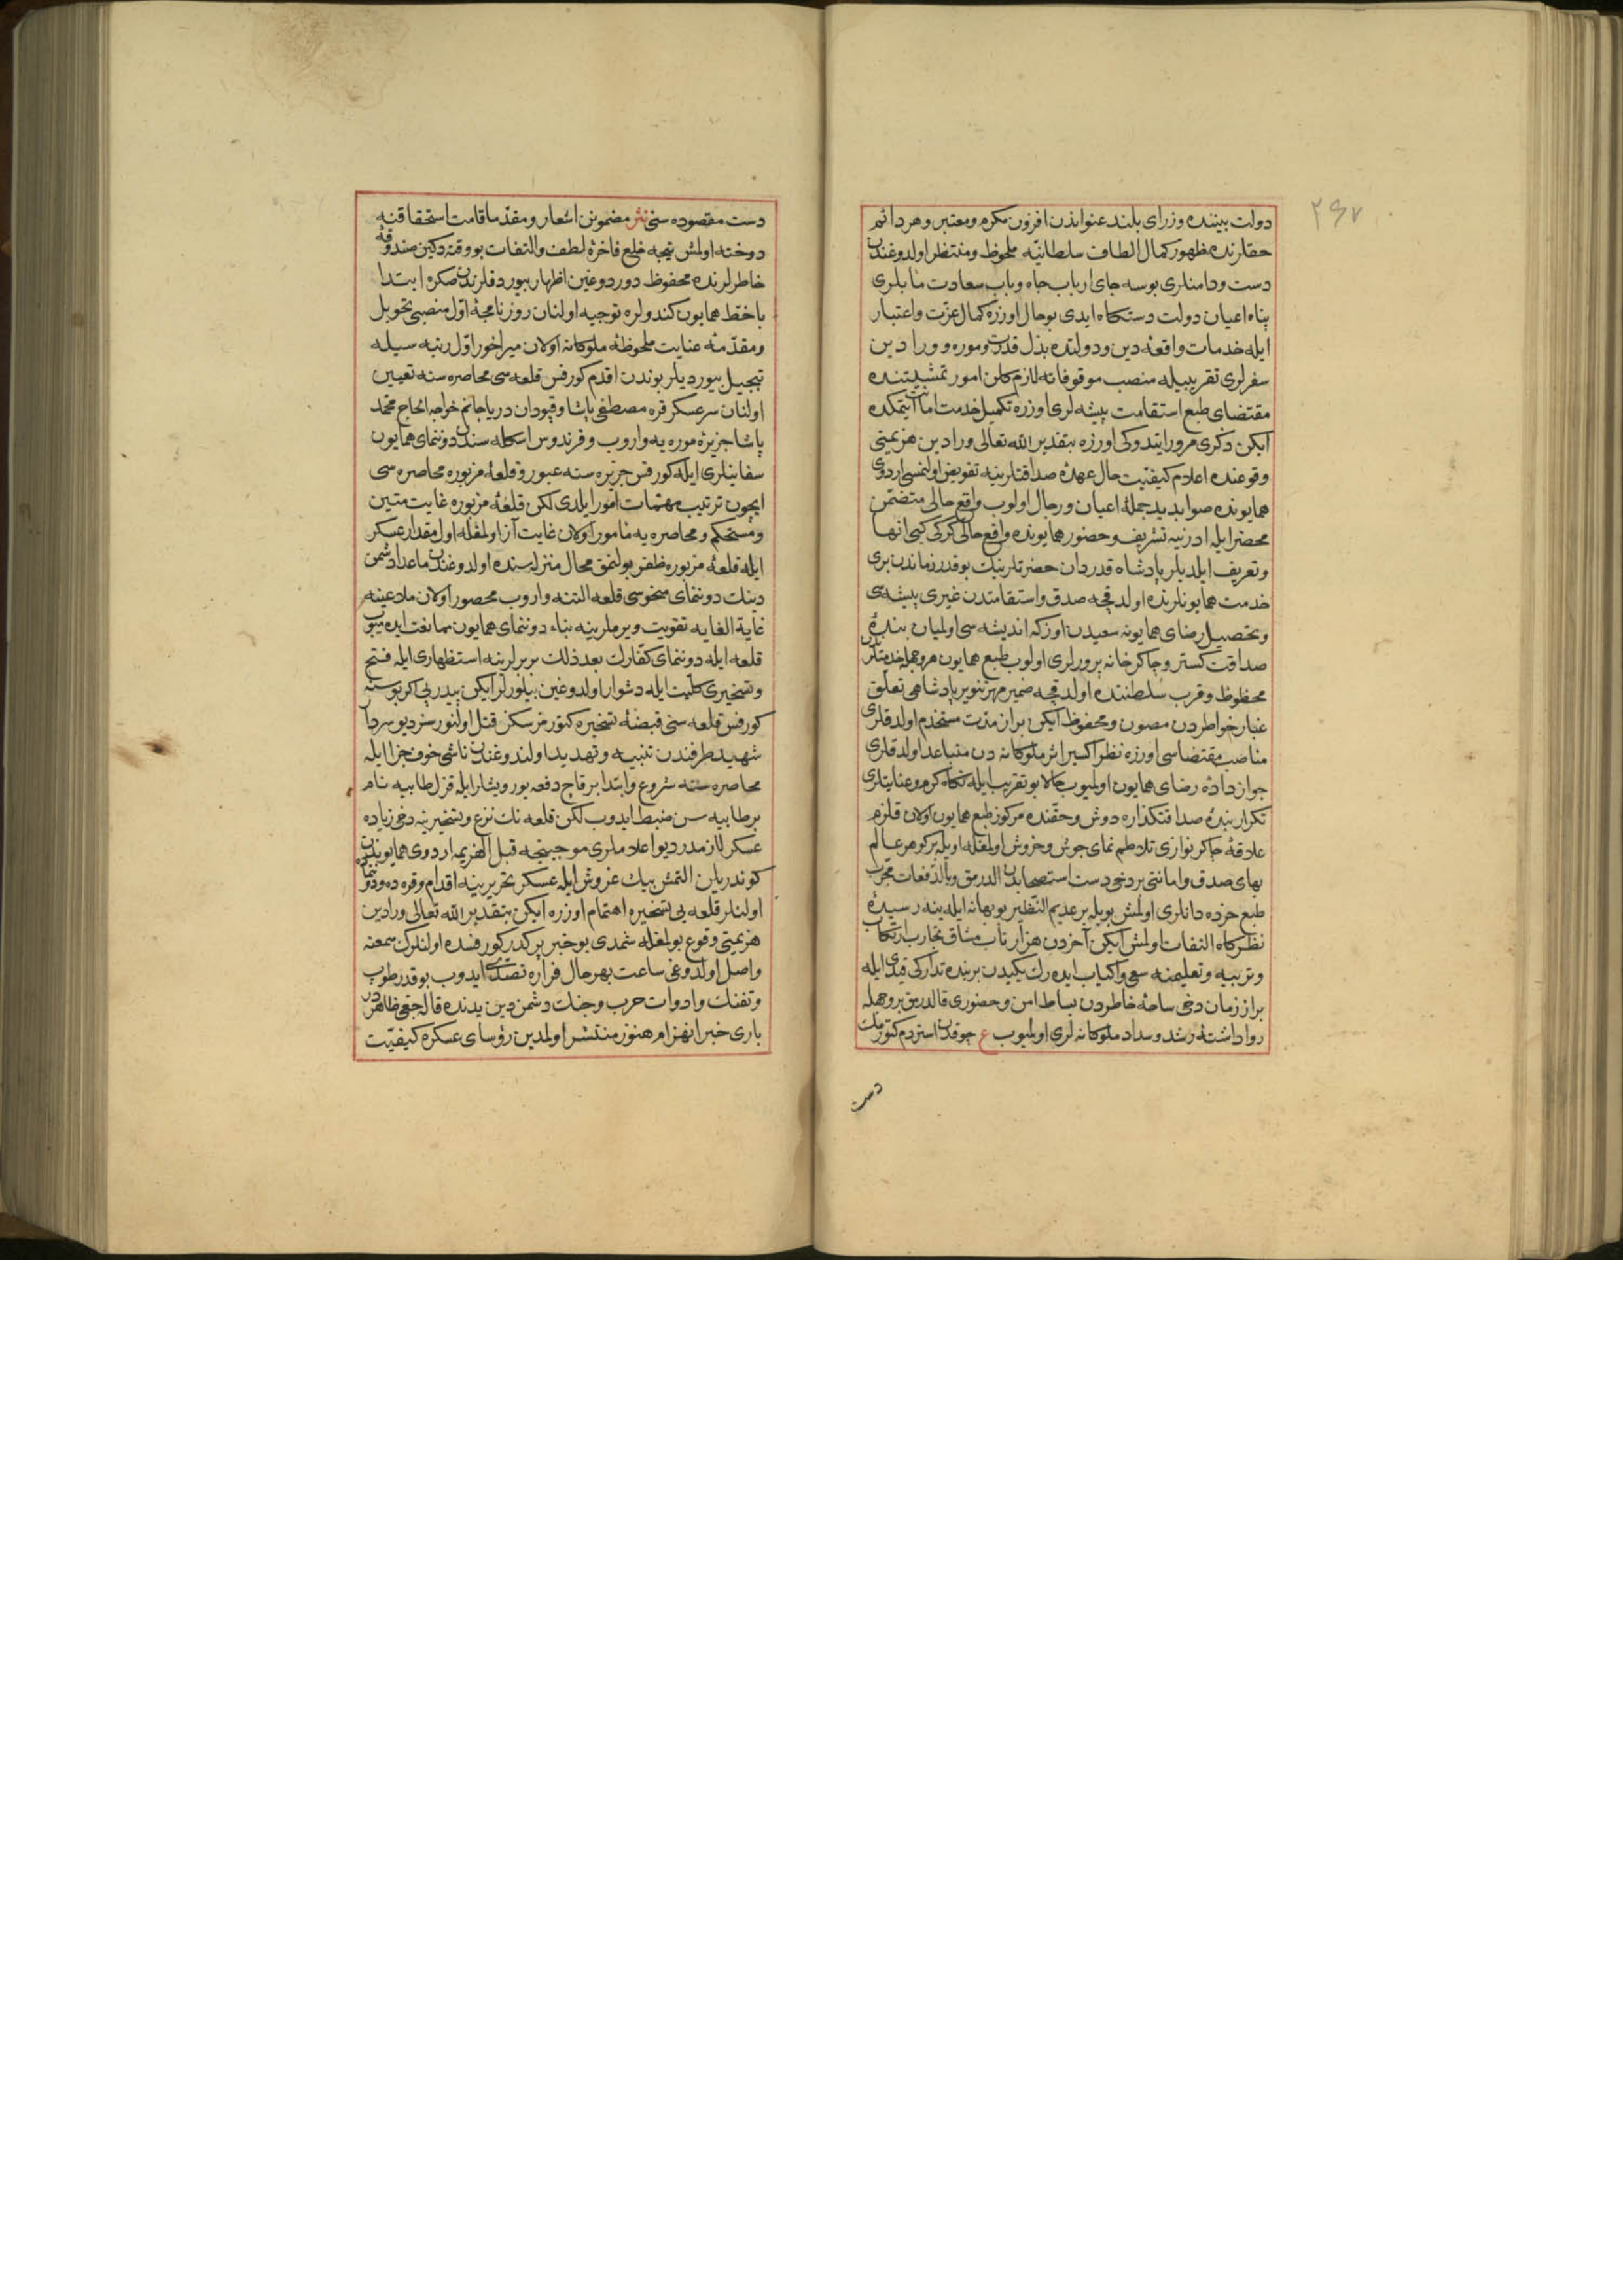 ٢٤٧
دولت بیننده وزرای بلند عنواندن افزون مکرم ومعتبر وهر دائم
حقلرنده ظهور کمال الطاف سلطانیّه ملحوظ ومنتظر اولدوغندن
دست ودامنلری بوسه جای ارباب جاه وباب سعادت مأبلری
پناه اعیان دولت دستکاه ایدی بوحال اوزره کمال عزّت واعتبار
ایله خدمات واقعۀ دین ودولتده بذل قدرت وموره و ورادین
سفرلری تقریبیله منصب موقوفاته لازم کلن امور تمشیتنده
مقتضای طبع استقامت پیشه لری اوزره تکمیل خدمت اماآیتمکده
ایکن ذکری مرور ایندوکی اوزره بتقدیر الله تعالی ورادین هزیمتی
وقوعنده اعلام کیفیّت حال عهدۀ صداقتلرینه تفویض اولنمسی اردوی
همایونده صوابدید جملۀ اعیان ورجال اولوب واقع حالی متضمّن
محضر ایله ادرنیه تشریف وحضور همایونده واقع حالی کرکی کبی انها
وتعریف ایلدیلر پادشاه قدردان حضرتلرینك بوقدر زماندن بری
خدمت همایونلرنده اولدقجه صدق واستقامتدن غیری پیشه سی
وتحصیل رضای همایونه سعیدن اوزکه اندیشه سی اولمیان بندۀ
صداقت کستر وچاکر خانه پرورلری اولوب طبع همایون هر وجهله خدمتلرندن
محظوظ وقرب سلطنتده اولدقجه ضمیر مهرتنویر پادشاهی تعلّق
غبار خواطردن مصون ومحفوظ ایکن براز مدّت مستخدم اولدقلری
مناصب مقتضاسی اوزره نظر اکسیر اثر ملوکانه دن متباعد اولدقلری
جواز دادۀ رضای همایون اولمیوب حالا بو تقریب ایله نکاه کرم وعنایتلری
تکرار بندۀ صداقتکذاره دوش وحقّنده مرکوز طبع همایون اولان قلزم
علاقۀ چاکرنوازی تلاطم نمای جوش وخروش اولمغله اویله بر کوهر عالم
بهای صدق وامانتی بر دخی دست استصحابدن الدرمق وبالدّفعات مجرّب
طبع خرده دانلری اولمش بویله بر عدیم النّظیر بو بهانه ایله ینه رسیدۀ
نظرکاه التفات اولمش ایکن آخردن هزار تاب مشاق تجارب ارتکاب
وتربیه وتعلیمنه سعی واکیاب ایده رك یکیدن بر بنده تدارکی قیدی ایله
براز زمان دخی ساحۀ خاطردن بساط امن وحضوری قالدرمق بر وجهله
رواداشتۀ رشد وسداد ملوکانه لری اولمیوب ع چوقدن استردم کتورمك
دست
دست مقصوده سنی نثر مضمونن اشعار ومقدّما قامت استحقاقنه
دوخته اولمش نیجه خلع فاخرۀ لطف والتفات بو وقته دکین صندوقۀ
خاطرلرنده محفوظ دوردوغین اظهار بیوردقلرندن صکره ابتدا
باخطّ همایون کندولره توجیه اولنان روزنامجۀ اوّل منصبی تحویل
ومقدّمۀ عنایت ملحوظۀ ملوکانه اولان میراخور اوّل رتبه سیله
تبجیل بیوردیلر بوندن اقدم کورفس قلعه سی محاصره سنه تعیین
اولنان سرعسکر قره مصطفی پاشا وقپودان دریا جانم خواجه الحاج محمّد
پاشا جزیرۀ موره یه واروب وفرندوس اسکله سندن دوننمای همایون
سفاینلری ایله کورفس جزیره سنه عبور وقلعۀ مزبوره محاصره سی
ایچون ترتیب مهمّات امور ایلدی لکن قلعۀ مزبوره غایت متین
ومستحکم ومحاصره یه مأمور اولان غایت آز اولمغله اول مقدار عسکر
ایله قلعۀ مزبوره ظفر بولنمق محال منزله سنده اولدوغندن ماعدا دشمن
دینك دوننمای منحوسی قلعه التنه واروب محصور اولان ملاعینه
غایة الغایه تقویت ویرملرینه بناء دوننمای همایون ممانعت ایده میوب
قلعه ایله دوننمای کفّارك بعد ذلك بربرلرینه استظهاری ایله فتح
وتسخیری کلّیت ایله دشوار اولدوغین بیلورلر ایکن پیدرپی اکر بوسنه
کورفس قلعه سنی قبضۀ تسخیره کتورمزسکز قتل اولنورسز دیو سردار
شهید طرفندن تنبیه وتهدید اولندوغندن ناشی خوف جزا ایله
محاصره سنه شروع وابتدا برقاچ دفعه یوریشلر ایله قزل طابیه نام
بر طابیه سن ضبط ایدوب لکن قلعه نك نزع وتسخیرینه دخی زیاده
عسکر لازمدر دیو اعلاملری موجبنجه قبل الهزیمه اردوی همایوندن
کوندریلن التمش بیك غروش ایله عسکر تحریرینه اقدام وقره ده ودوننمادن
اولنلر قلعه یی تسخیره اهتمام اوزره ایکن بتقدیر الله تعالی ورادین
هزیمتی وقوع بولمغله شمدی بو خبر پر کدر کورفسده اولنلرك سمعنه
واصل اولدوغی ساعت بهر حال فراره تصدّی ایدوب بوقدر طوب
وتفنك وادوات حرب وجنك دشمن دین یدنده قالەجغی ظاهردر
باری خبر انهزام هنوز منتشر اولمدین رؤسای عسکره کیفیّت